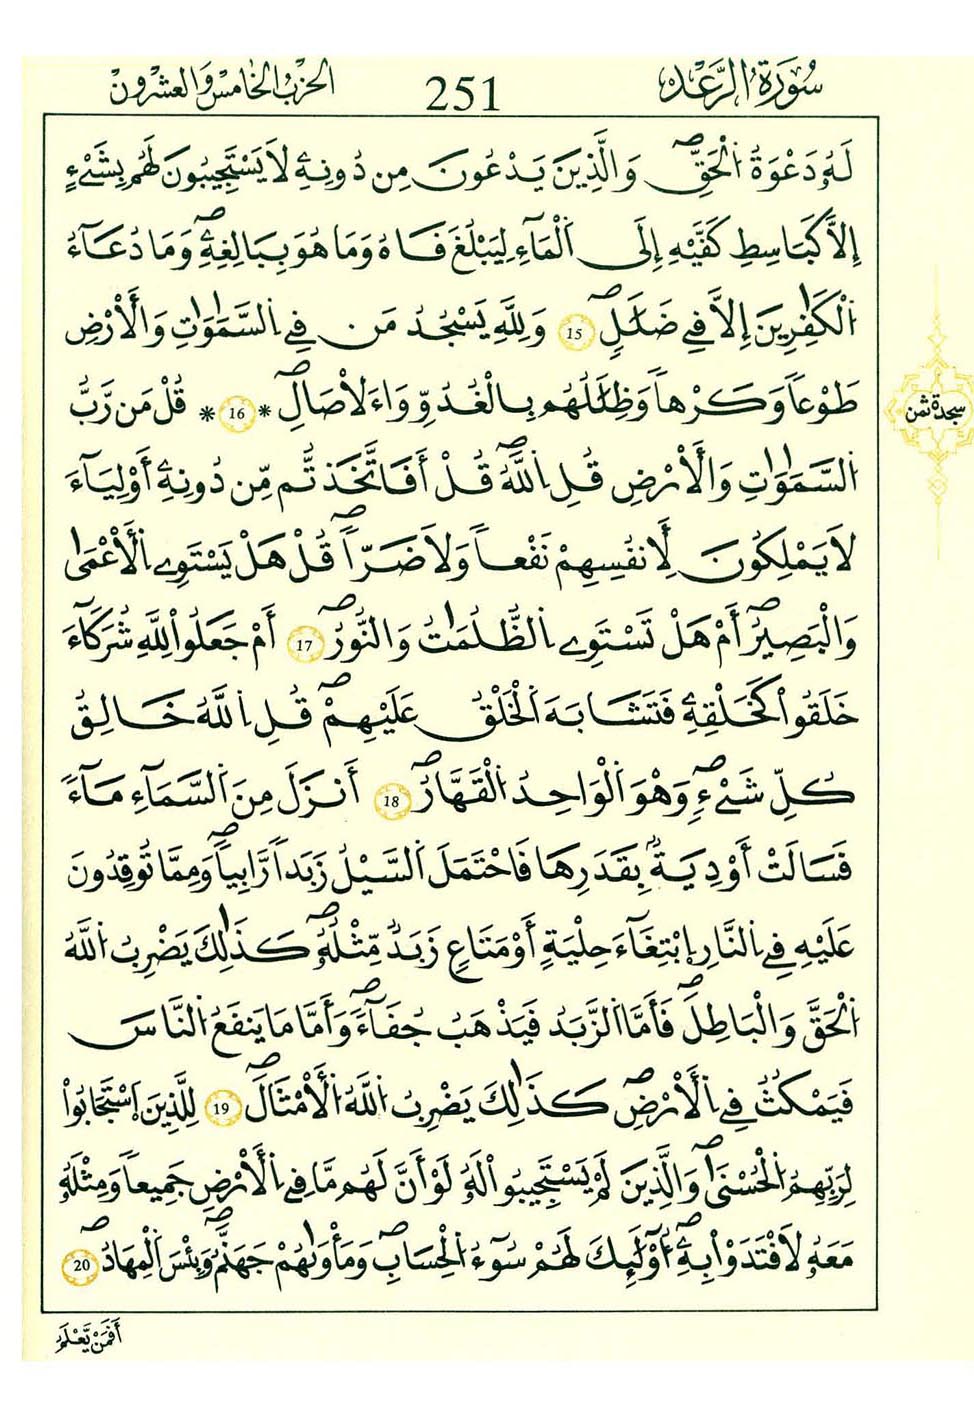 سُورَةُ الرَّعْدِ 251 الحِزْبُ الخَامِسُ وَالعِشْرُونَ
لَهُۥ دَعْوَةُ اُ۬لْحَقِّۖ وَالذِينَ يَدْعُونَ مِن دُونِهِۦ لَا يَسْتَجِيبُونَ لَهُم بِشَےْءٍ
اِلَّا كَبَٰسِطِ كَفَّيْهِ إِلَى اَ۬لْمَآءِ لِيَبْلُغَ فَاهُ وَمَا هُوَ بِبَٰلِغِهِۦۖ وَمَا دُعَآءُ
اُ۬لْكَٰفِرِينَ إِلَّا فِے ضَلَٰلٍۖ 15 وَلِلهِ يَسْجُدُ مَن فِے اِ۬لسَّمَٰوَٰتِ وَالْأَرْضِ
طَوْعاً وَكَرْهاً وَظِلَٰلُهُم بِالْغُدُوِّ وَاءَلْأصَالِۖ * 16 * قُلْ مَن رَّبُّ
اُ۬لسَّمَٰوَٰتِ وَالْأَرْضِ قُلِ اِ۬للَّهُۖ قُلْ أَفَاتَّخَذتُّم مِّن دُونِهِۦٓ أَوْلِيَآءَ
لَا يَمْلِكُونَ لِأَنفُسِهِمْ نَفْعاً وَلَا ضَرّاًۖ قُلْ هَلْ يَسْتَوِے اِ۬لْأَعْمَىٰ
وَالْبَصِيرُۖ أَمْ هَلْ تَسْتَوِے اِ۬لظُّلُمَٰتُ وَالنُّورُۖ 17 أَمْ جَعَلُواْ لِلهِ شُرَكَآءَ
خَلَقُواْ كَخَلْقِهِۦ فَتَشَٰبَهَ اَ۬لْخَلْقُ عَلَيْهِمْۖ قُلِ اِ۬للَّهُ خَٰلِقُ
كُلِّ شَےْءٖۖ وَهْوَ اَ۬لْوَٰحِدُ اُ۬لْقَهَّٰرُۖ 18 أَنزَلَ مِنَ اَ۬لسَّمَآءِ مَآءً
فَسَالَتْ أَوْدِيَةُۢ بِقَدَرِهَا فَاحْتَمَلَ اَ۬لسَّيْلُ زَبَداً رَّابِياًۖ وَمِمَّا تُوقِدُونَ
عَلَيْهِ فِے اِ۬لنَّارِ اِ۪بْتِغَآءَ حِلْيَةٍ أَوْ مَتَٰعٍ زَبَدٌ مِّثْلُهُۥۖ كَذَٰلِكَ يَضْرِبُ اُ۬للَّهُ
اُ۬لْحَقَّ وَالْبَٰطِلَۖ فَأَمَّا اَ۬لزَّبَدُ فَيَذْهَبُ جُفَآءًۖ وَأَمَّا مَا يَنفَعُ اُ۬لنَّاسَ
فَيَمْكُثُ فِے اِ۬لْأَرْضِۖ كَذَٰلِكَ يَضْرِبُ اُ۬للَّهُ اُ۬لْأَمْثَالَۖ 19 لِلَّذِينَ اِ۪سْتَجَابُواْ
لِرَبِّهِمُ اُ۬لْحُسْنَىٰۖ وَالَّذِينَ لَمْ يَسْتَجِيبُواْ لَهُۥ لَوْ أَنَّ لَهُم مَّا فِے اِ۬لْأَرْضِ جَمِيعاً وَمِثْلَهُۥ
مَعَهُۥ لَافْتَدَوْاْ بِهِۦٓۖ أُوْلَٰٓئِكَ لَهُمْ سُوٓءُ اُ۬لْحِسَابِۖ وَمَأْوَىٰهُمْ جَهَنَّمُۖ وَبِئْسَ اَ۬لْمِهَادُۖ 20
سجدة ثمن
أَفَمَنْ يَّعْلَمُ